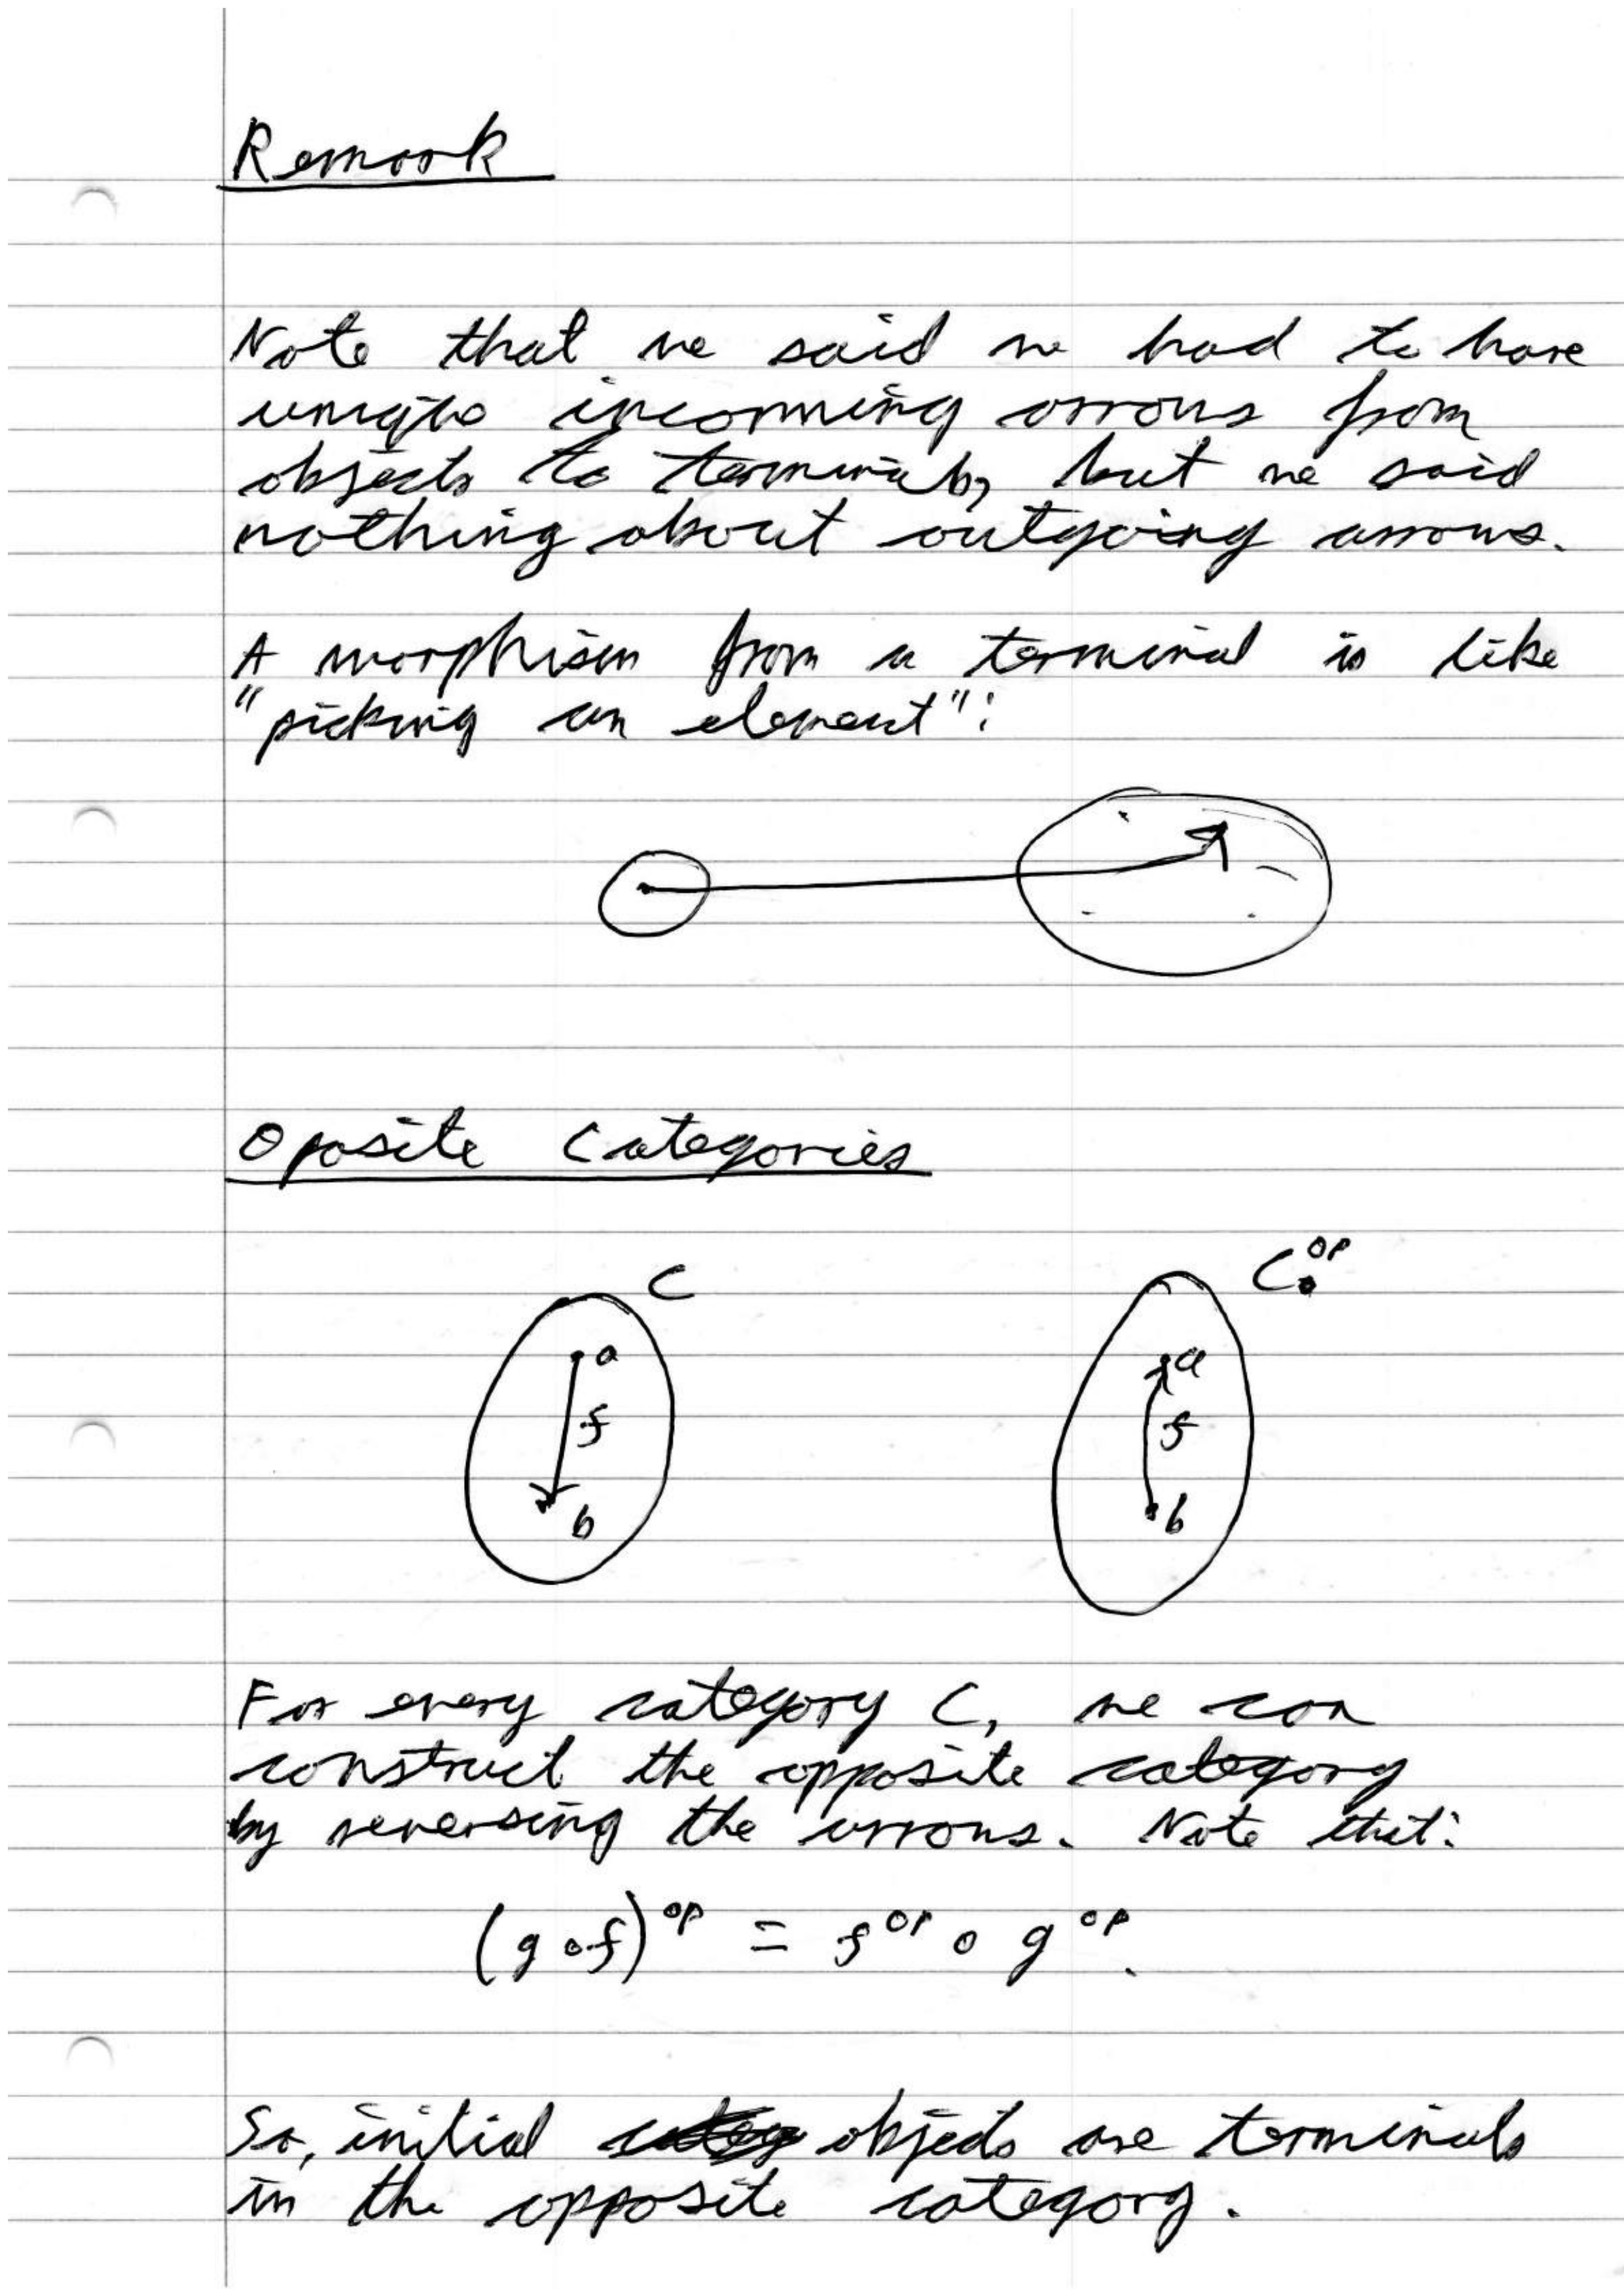 Remark
Note that we said we had to have
unique incomming arrows from
objects to terminals, but we said
nothing about outgoing arrows.
A morphism from a terminal is like
"picking an element":
Oposite Categories
C
C^op
a
a
f
f
b
b
For every category C, we can
construct the opposite category
by reversing the arrows. Note that:
(g∘f)^op = f^op ∘ g^op.
So, initial objects are terminals
in the opposite category.